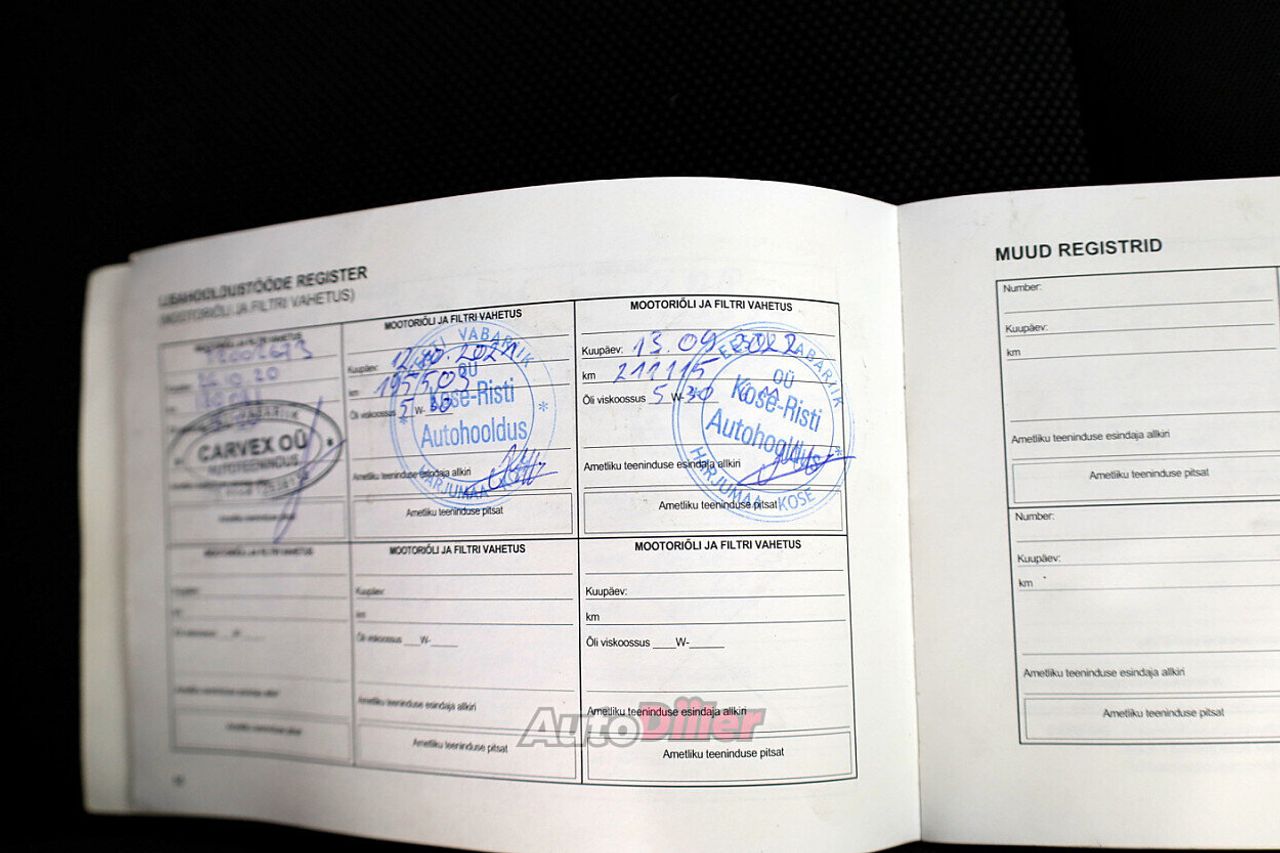 LISAHOOLDUSTÖÖDE REGISTER
(MOOTORIÕLI JA FILTRI VAHETUS)
MOOTORIÕLI JA FILTRI VAHETUS
CARVEX OÜ
AUTOTEENINDUS
MOOTORIÕLI JA FILTRI VAHETUS
Kuupäev: 12.10.2021
km 195503
Õli viskoossus 5 W- 30
VABARIIK
OÜ
Kose-Risti
Autohooldus
HARJUMAA
Ametliku teeninduse esindaja allkiri
Ametliku teeninduse pitsat
MOOTORIÕLI JA FILTRI VAHETUS
Kuupäev: 13.09.2022
km 211115
Õli viskoossus 5 W- 30
EESTI VABARIIK
OÜ
Kose-Risti
Autohooldus
HARJUMAA KOSE
Ametliku teeninduse esindaja allkiri
Ametliku teeninduse pitsat
MOOTORIÕLI JA FILTRI VAHETUS
MOOTORIÕLI JA FILTRI VAHETUS
Kuupäev:
km
Õli viskoossus ___W-_____
Ametliku teeninduse esindaja allkiri
Ametliku teeninduse pitsat
MOOTORIÕLI JA FILTRI VAHETUS
Kuupäev:
km
Õli viskoossus ____W-______
Ametliku teeninduse esindaja allkiri
Ametliku teeninduse pitsat
AutoDiiler
MUUD REGISTRID
Number:
Kuupäev:
km
Ametliku teeninduse esindaja allkiri
Ametliku teeninduse pitsat
Number:
Kuupäev:
km
Ametliku teeninduse esindaja allkiri
Ametliku teeninduse pitsat